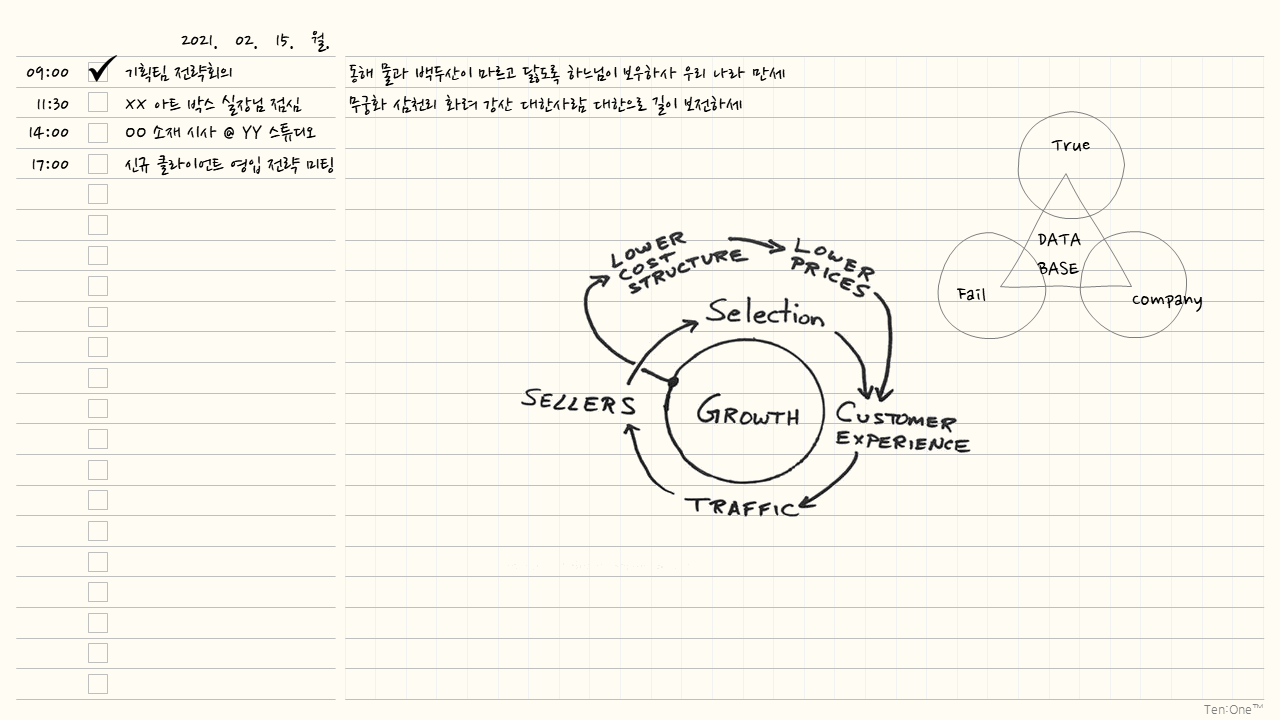 2021. 02. 15. 월.
09:00 기획팀 전략회의
11:30 XX 아트 박스 실장님 점심
14:00 OO 소재 시사 @ YY 스튜디오
17:00 신규 클라이언트 영입 전략 미팅
동해 물과 백두산이 마르고 닳도록 하느님이 보우하사 우리 나라 만세
무궁화 삼천리 화려 강산 대한사람 대한으로 길이 보전하세
True
DATA
BASE
Fail
company
LOWER
COST
STRUCTURE
LOWER
PRICES
Selection
SELLERS
GROWTH
CUSTOMER
EXPERIENCE
TRAFFIC
Ten:One™